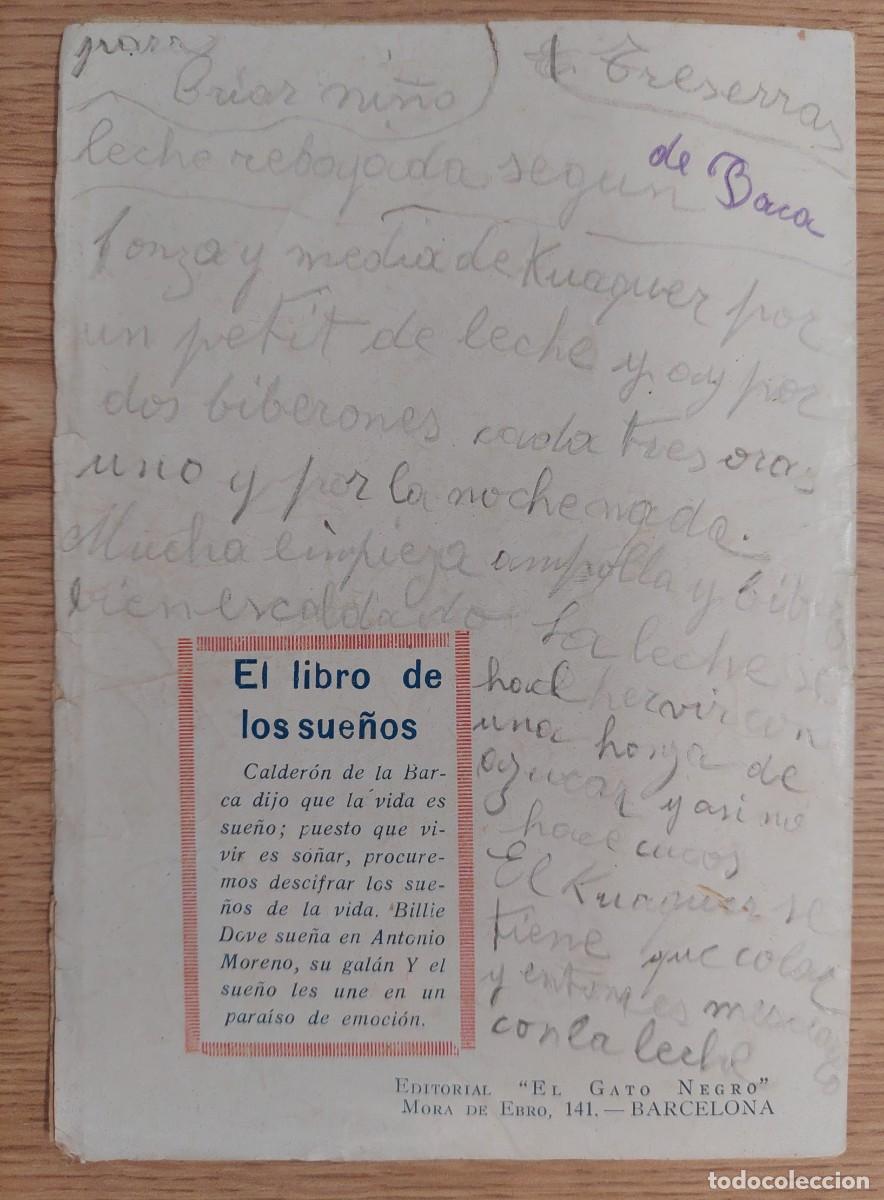 para
Criar niño
Treserras
leche rebajada segun
de Baca
1 onza y media de Kuaquer por
un petit de leche y ay por
dos biberones cada tres oras
uno y por la noche nada.
Mucha limpieza ampolla y bibero
bien escaldado La leche se
hace hervir con
una honza de
azucar y asi no
hace cucos
El Kuaquer se
tiene que colar
y entonces mesclarlo
con la leche
El libro de
los sueños
Calderón de la Bar-
ca dijo que la vida es
sueño; puesto que vi-
vir es soñar, procure-
mos descifrar los sue-
ños de la vida. Billie
Dove sueña en Antonio
Moreno, su galán Y el
sueño les une en un
paraíso de emoción.
EDITORIAL "EL GATO NEGRO"
MORA DE EBRO, 141. — BARCELONA
todocoleccion